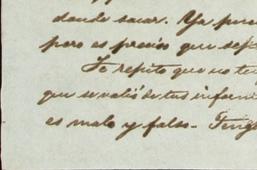 donde sacar. Ya pue
pero es preciso que sep
Te repito que no te
que se valió de tus inform
es malo y falso. Teng